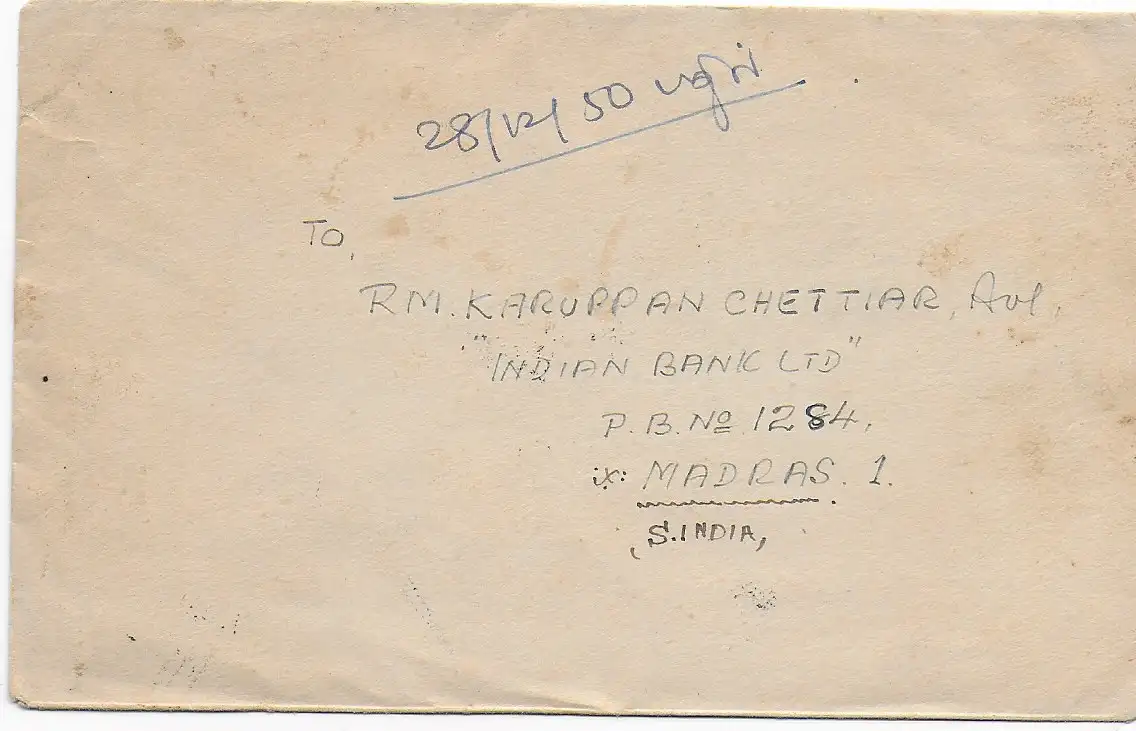 28/12/50
To,
RM. KARUPPAN CHETTIAR, Avl,
"INDIAN BANK LTD"
P.B. No 1284,
MADRAS. 1.
S.INDIA,